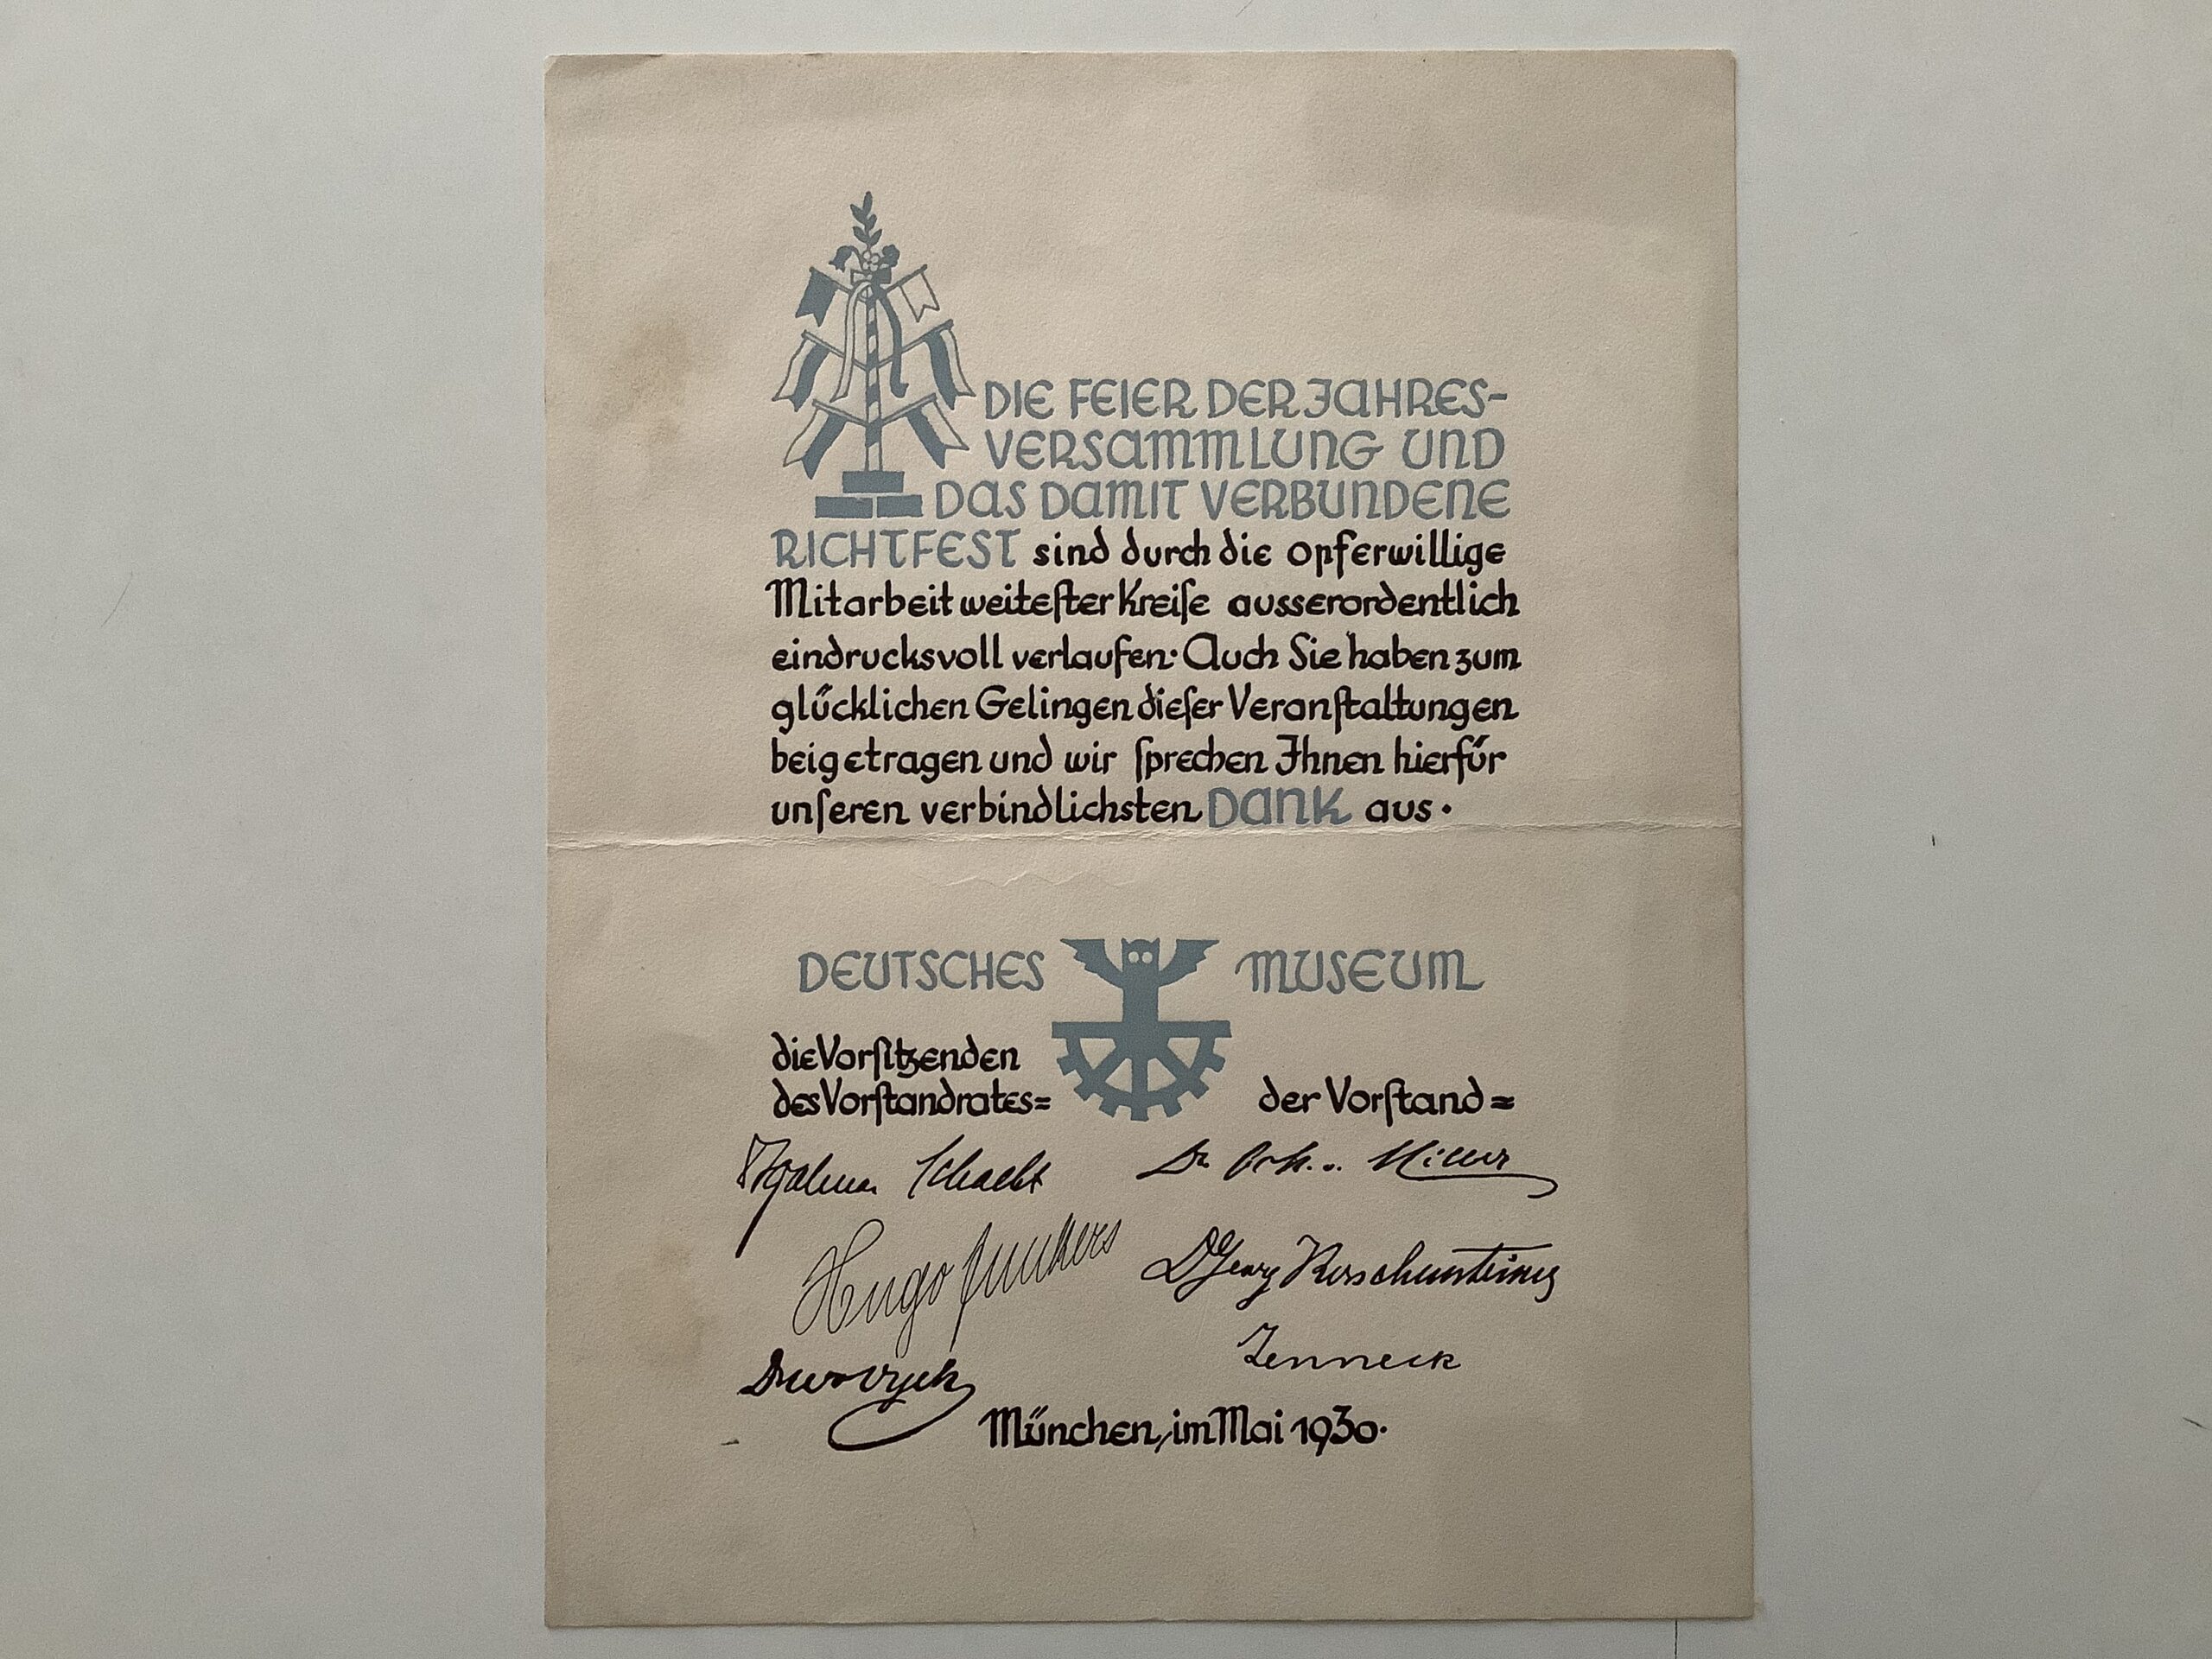 DIE FEIER DER JAHRES-
VERSAMMLUNG UND
DAS DAMIT VERBUNDENE
RICHTFEST sind durch die opferwillige
Mitarbeit weiteſter Kreiſe ausserordentlich
eindrucksvoll verlaufen· Auch Sie haben zum
glücklichen Gelingen dieſer Veranſtaltungen
beigetragen und wir ſprechen Ihnen hierfür
unſeren verbindlichsten DANK aus·
DEUTSCHES MUSEUM
die Vorſitzenden
des Vorſtandrates=
der Vorſtand=
Hjalmar Schacht
Dr. Osk. v. Miller
Hugo Junkers
Dr Georg Kerschensteiner
Zenneck
München, im Mai 1930·